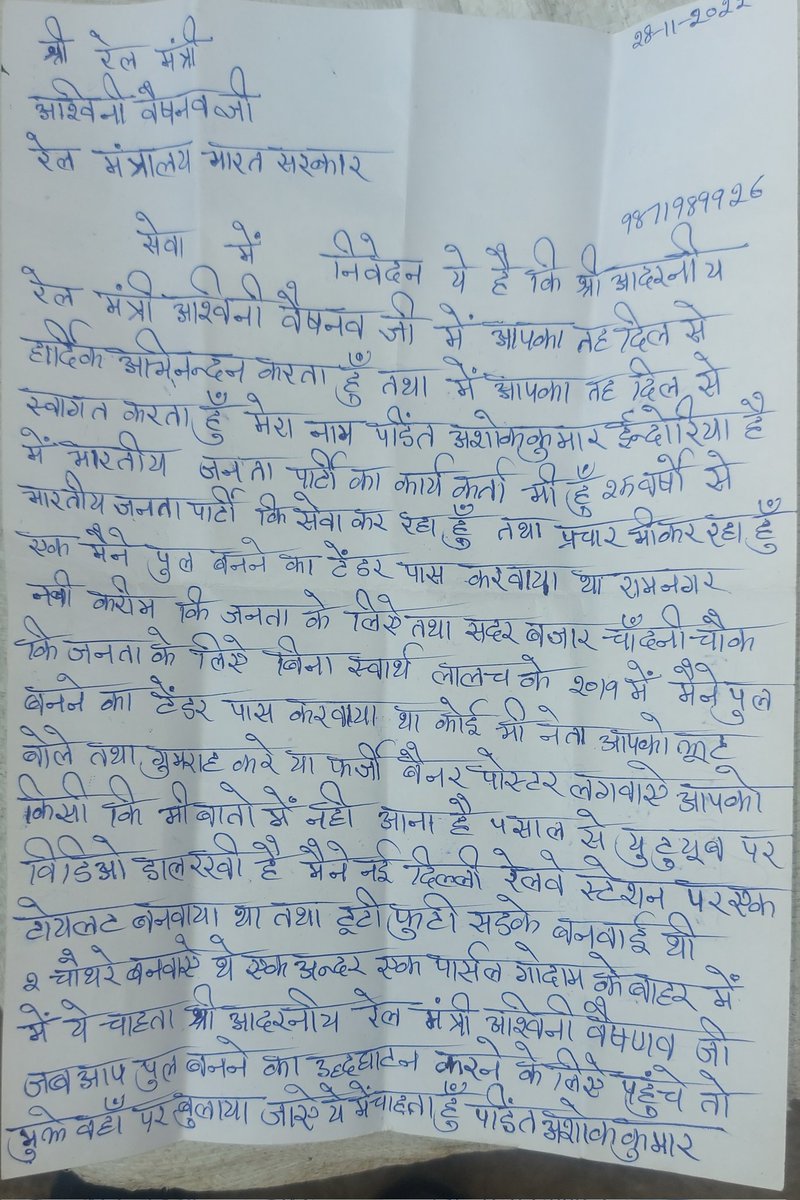 28-11-2022
श्री रेल मंत्री
अश्विनी वैषनव जी
रेल मंत्रालय भारत सरकार
9871989926
सेवा में निवेदन ये है कि श्री आदरनीय
रेल मंत्री अश्विनी वैषनव जी में आपका तह दिल से
हार्दिक अभिनन्दन करता हुँ तथा में आपका तह दिल से
स्वागत करता हुँ मेरा नाम पंडित अशोक कुमार ईन्दोरिया है
में भारतीय जनता पार्टी का कार्य कर्ता भी हुँ वर्षो से
भारतीय जनता पार्टी कि सेवा कर रहा हुँ तथा प्रचार भी कर रहा हुँ
एक मैने पुल बनने का टेंडर पास करवाया था रामनगर
नबी करीम कि जनता के लिऐ तथा सदर बजार चाँदनी चौक
कि जनता के लिऐ बिना स्वार्थ लालच के २०१९ में मैने पुल
बनने का टेंडर पास करवाया था कोई भी नेता आपको झूट
बोले तथा गुमराह करे या फर्जी बैनर पोस्टर लगवाऐ आपको
किसी कि भी बातो में नही आना है ५ साल से युटुयूब पर
विडिओ डाल रखी है मैने नई दिल्ली रेलवे स्टेशन पर एक
टोयलट बनवाया था तथा टूटी फुटी सडके बनवाई थी
२ चौथरे बनवाऐ थे एक अन्दर एक पार्सल गोदाम के बाहर में
में ये चाहता श्री आदरनीय रेल मंत्री अश्विनी वैषणव जी
जब आप पुल बनने का उद्दघाटन करने के लिऐ पहुंचे तो
मुझे वहाँ पर बुलाया जाऐ ये में चाहता हुँ पंडित अशोक कुमार